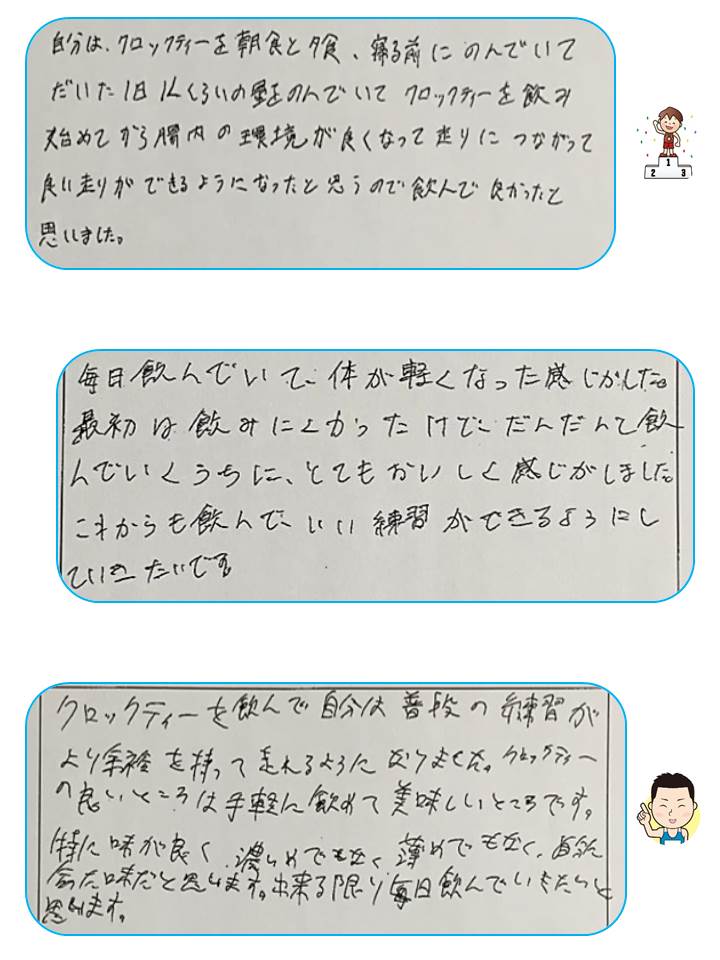 自分は、クロックティーを朝食と夕食、寝る前にのんでいて
だいた1日1Lくらいの量をのんでいてクロックティーを飲み
始めてから腸内の環境が良くなって走りにつながって
良い走りができるようになったと思うので飲んで良かったと
思いました。
毎日飲んでいて、体が軽くなった感じがした。
最初は飲みにくかったけど、だんだんて飲
んでいくうちに、とてもおいしく感じがしました。
これからも飲んで、いい練習ができるようにし
ていきたいです
クロックティーを飲んで自分は普段の練習が
より余裕を持って走れるようになりました。クロックティー
の良いところは手軽に飲めて美味しいところです。
特に味が良く、濃いめでもなく、薄めでもなく、自分に
合った味だと思います。出来る限り毎日飲んでいきたいと
思います。
1
2 3